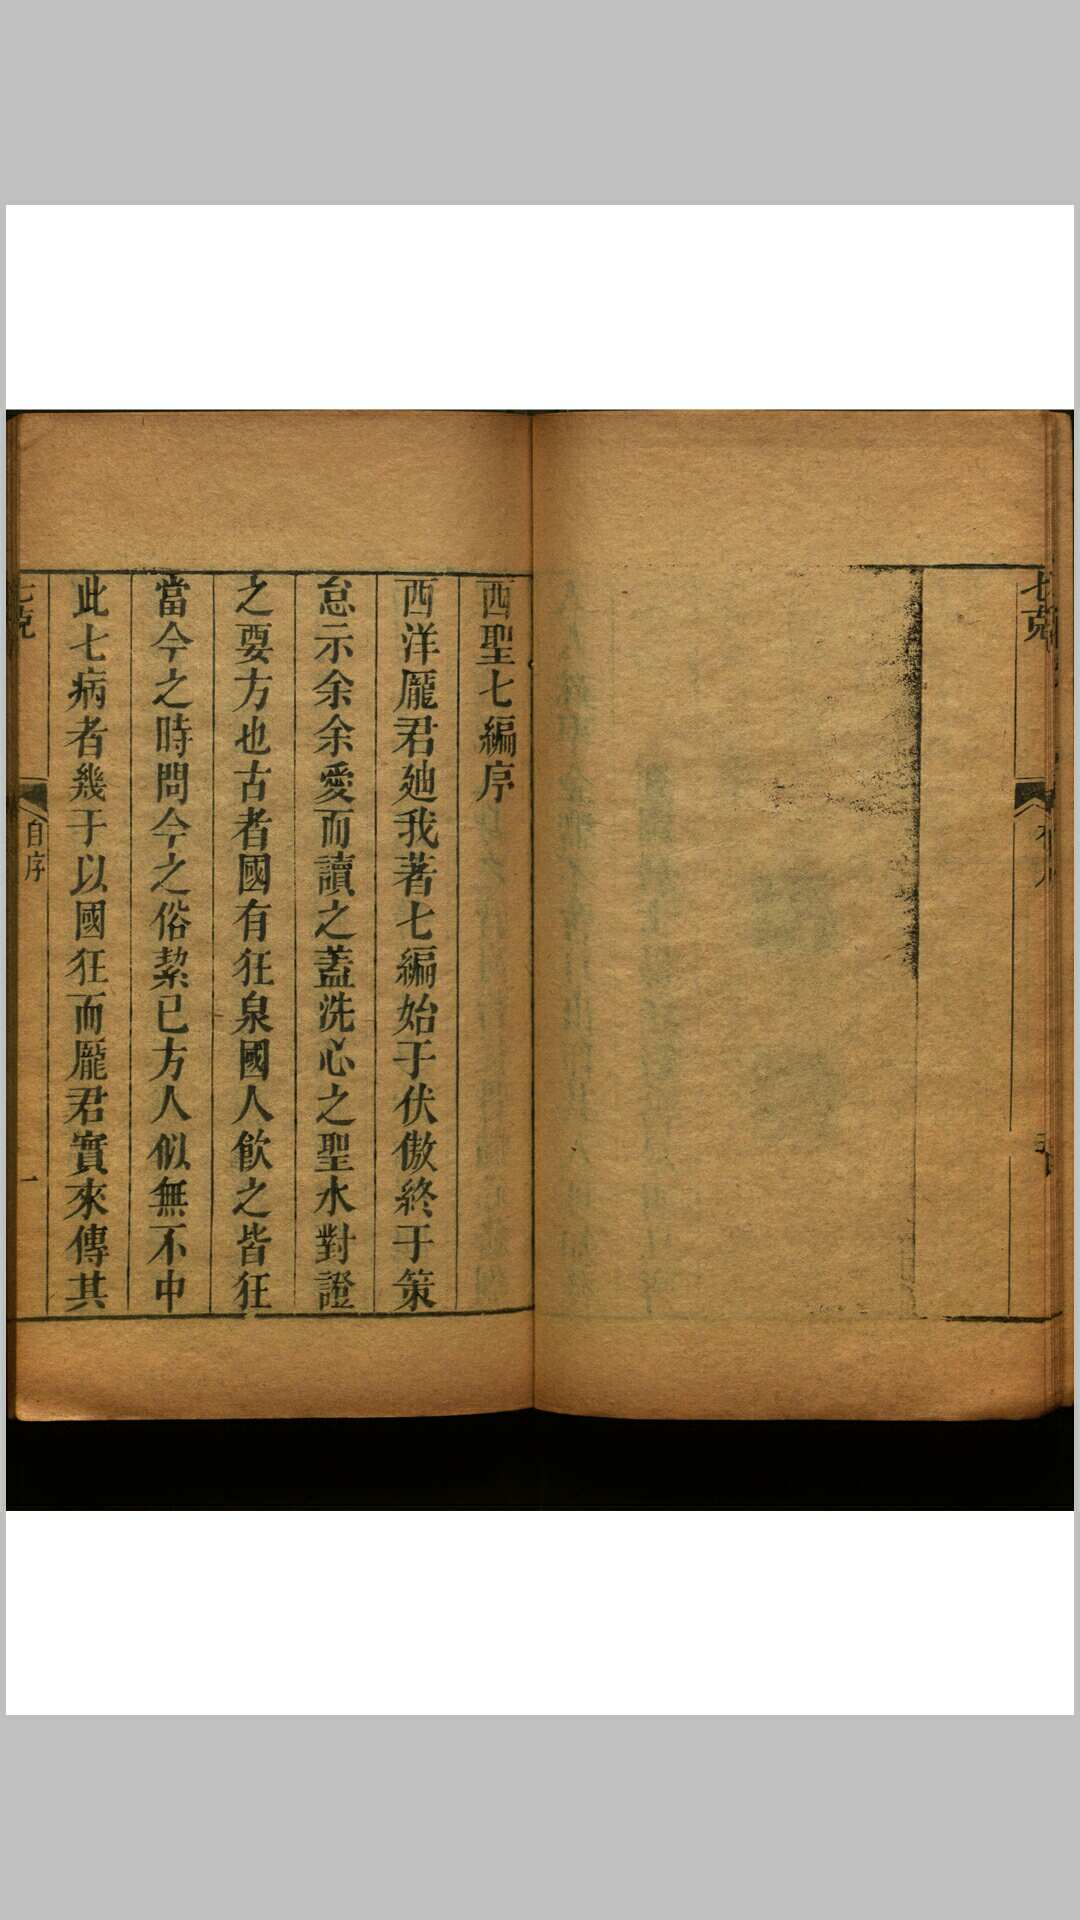 七克
西聖七編序
西洋龎君廸我著七編始于伏傲終于策
怠示余余愛而讀之蓋洗心之聖水對證
之要方也古者國有狂泉國人飲之皆狂
當今之時問今之俗絜已方人似無不中
此七病者幾于以國狂而龎君實來傳其
七克
自序
一